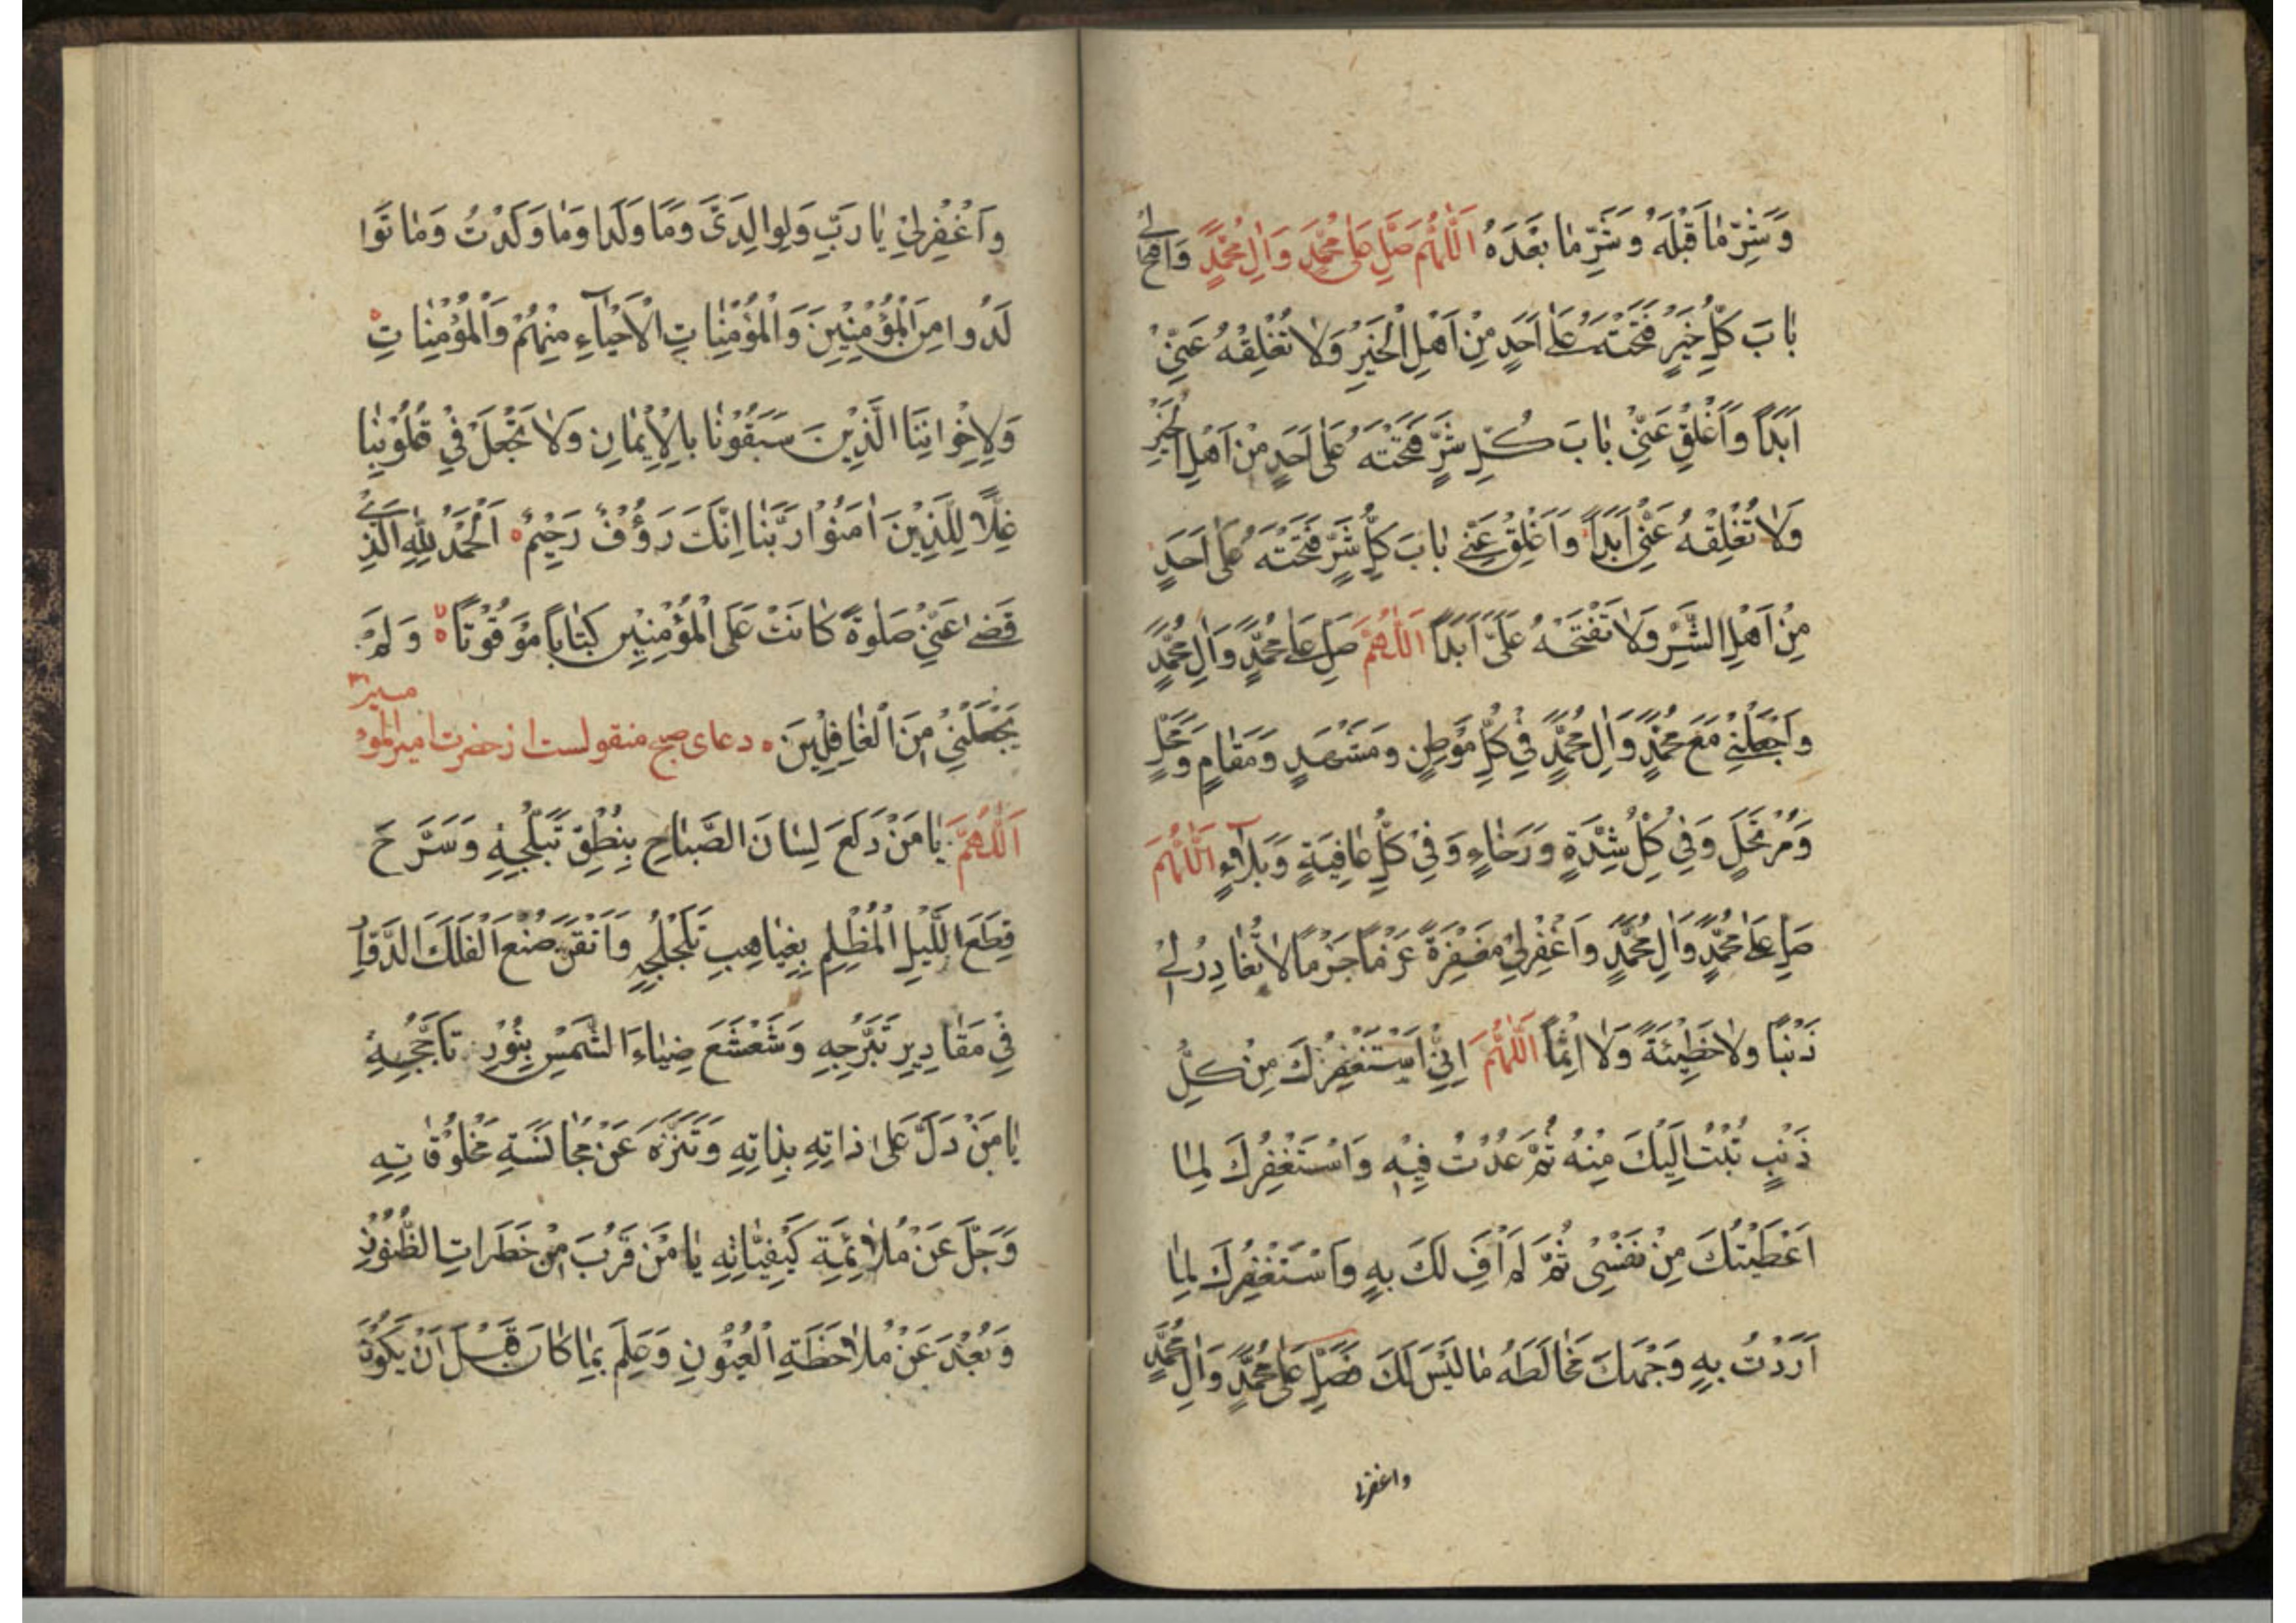 وَشَرِّ مٰا قَبْلَهُ وَشَرِّ مٰا بَعْدَهُ اَللّٰهُمَّ صَلِّ عَلىٰ مُحَمَّدٍ وَاٰلِ مُحَمَّدٍ وَافْتَحْ لي
بٰابَ كُلِّ خَيْرٍ فَتَحْتَهُ عَلىٰ اَحَدٍ مِنْ اَهْلِ الْخَيْرِ وَلاٰ تُغْلِقْهُ عَنّيْ
اَبَداً وَاَغْلِقْ عَنّيْ بٰابَ كُلِّ شَرٍّ فَتَحْتَهُ عَلىٰ اَحَدٍ مِنْ اَهْلِ الْخَيْرِ
وَلاٰ تُغْلِقْهُ عَنّيْ اَبَداً وَاَغْلِقْ عَنّيْ بٰابَ كُلِّ شَرٍّ فَتَحْتَهُ عَلىٰ اَحَدٍ
مِنْ اَهْلِ الشَّرِّ وَلاٰ تَفْتَحْهُ عَلَيَّ اَبَداً اَللّٰهُمَّ صَلِّ عَلىٰ مُحَمَّدٍ وَاٰلِ مُحَمَّدٍ
وَاجْعَلْنيْ مَعَ مُحَمَّدٍ وَاٰلِ مُحَمَّدٍ فِيْ كُلِّ مَوْطِنٍ وَمَشْهَدٍ وَمَقٰامٍ وَمَحَلٍّ
وَمُرْتَحَلٍ وَفِيْ كُلِّ شِدَّةٍ وَرَخٰاءٍ وَفِيْ كُلِّ عٰافِيَةٍ وَبَلاٰءٍ اَللّٰهُمَّ
صَلِّ عَلىٰ مُحَمَّدٍ وَاٰلِ مُحَمَّدٍ وَاغْفِرْليْ مَغْفِرَةً عَزْمًا جَزْمًا لاٰ تُغٰادِرُ لِيْ
ذَنْبًا وَلاٰ خَطِيْئَةً وَلاٰ اِثْمًا اَللّٰهُمَّ اِنّيْ اَسْتَغْفِرُكَ مِنْ كُلِّ
ذَنْبٍ تُبْتُ اِلَيْكَ مِنْهُ ثُمَّ عُدْتُ فِيْهِ وَاَسْتَغْفِرُكَ لِمٰا
اَعْطَيْتُكَ مِنْ نَفْسيْ ثُمَّ لَمْ اَفِ لَكَ بِهِ وَاَسْتَغْفِرُكَ لِمٰا
اَرَدْتُ بِهِ وَجْهَكَ فَخٰالَطَهُ مٰا لَيْسَ لَكَ فَصَلِّ عَلىٰ مُحَمَّدٍ وَاٰلِ مُحَمَّدٍ
واغفرلي
وَاغْفِرْليْ يٰا رَبِّ وَلِوٰالِدَيَّ وَمٰا وَلَدا وَمٰا وَلَدْتُ وَمٰا تَوٰا
لَدُوا مِنَ الْمُؤْمِنِيْنَ وَالْمُؤْمِنٰاتِ الْاَحْيٰآءِ مِنْهُمْ وَالْمُؤْمِنٰاتِ
وَلِاِخْوٰانِنَا الَّذِيْنَ سَبَقُوْنٰا بِالْاِيْمٰانِ وَلاٰ تَجْعَلْ فِيْ قُلُوْبِنٰا
غِلّاً لِلَّذِيْنَ اٰمَنُوْا رَبَّنٰا اِنَّكَ رَؤُفٌ رَحِيْمٌ اَلْحَمْدُ لِلّٰهِ الَّذيْ
قَضىٰ عَنّيْ صَلٰوةً كٰانَتْ عَلَى الْمُؤْمِنِيْنَ كِتٰاباً مَوْقُوْتًا وَلَمْ
يَجْعَلْنيْ مِنَ الْغٰافِلِيْنَ دعاى صبح منقولست از حضرت امير المو
اَللّٰهُمَّ يٰا مَنْ دَلَعَ لِسٰانَ الصَّبٰاحِ بِنُطْقِ تَبَلُّجِهِ وَسَرَّحَ
قِطَعَ اللَّيْلِ الْمُظْلِمِ بِغَيٰاهِبِ تَلَجْلُجِهِ وَاَتْقَنَ صُنْعَ الْفَلَكِ الدَّوّٰارِ
فِيْ مَقٰادِيْرِ تَبَرُّجِهِ وَشَعْشَعَ ضِيٰاءَ الشَّمْسِ بِنُوْرِ تَاَجُّجِهِ
يٰا مَنْ دَلَّ عَلىٰ ذاتِهِ بِذاتِهِ وَتَنَزَّهَ عَنْ مُجٰانَسَةِ مَخْلُوْقٰاتِهِ
وَجَلَّ عَنْ مُلاٰئِمَةِ كَيْفِيّٰاتِهِ يٰا مَنْ قَرُبَ مِنْ خَطَرٰاتِ الظُّنُوْنِ
وَبَعُدَ عَنْ مُلاٰحَظَةِ الْعُيُوْنِ وَعَلِمَ بِمٰا كٰانَ قَبْلَ اَنْ يَكُوْنَ